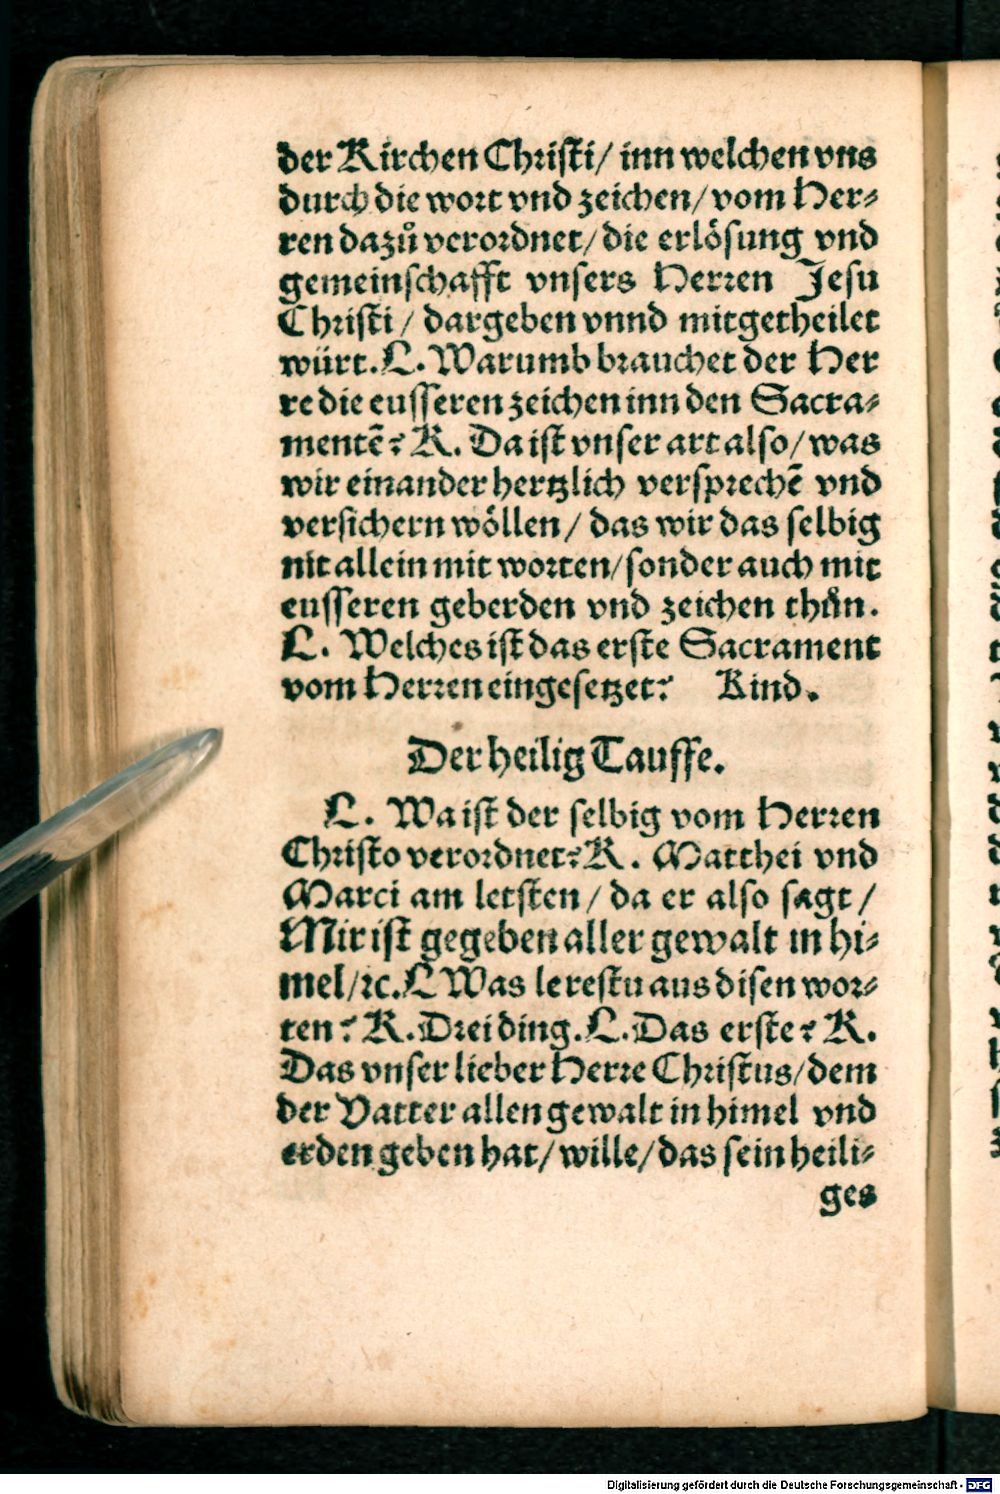 der Kirchen Christi/ inn welchen vns
durch die wort vnd zeichen/ vom Her⸗
ren dazuͦ verordnet/ die erloͤsung vnd
gemeinschafft vnsers Herren Jesu
Christi/ dargeben vnnd mitgetheilet
würt. L. Warumb brauchet der Her
re die eusseren zeichen inn den Sacra⸗
mentē? K. Da ist vnser art also/ was
wir einander hertzlich versprechē vnd
versichern woͤllen/ das wir das selbig
nit allein mit worten/ sonder auch mit
eusseren geberden vnd zeichen thuͦn.
L. Welches ist das erste Sacrament
vom Herren eingesetzet? Kind.
Der heilig Tauffe.
L. Wa ist der selbig vom Herren
Christo verordnet? K. Matthei vnd
Marci am letsten/ da er also sagt/
Mir ist gegeben aller gewalt in hi⸗
mel/ ꝛc. L Was lerestu aus disen wor⸗
ten? K. Drei ding. L. Das erste? K.
Das vnser lieber Herre Christus/ dem
der Vatter allen gewalt in himel vnd
erden geben hat/ wille/ das sein heili⸗
ges
Digitalisierung gefördert durch die Deutsche Forschungsgemeinschaft - DFG